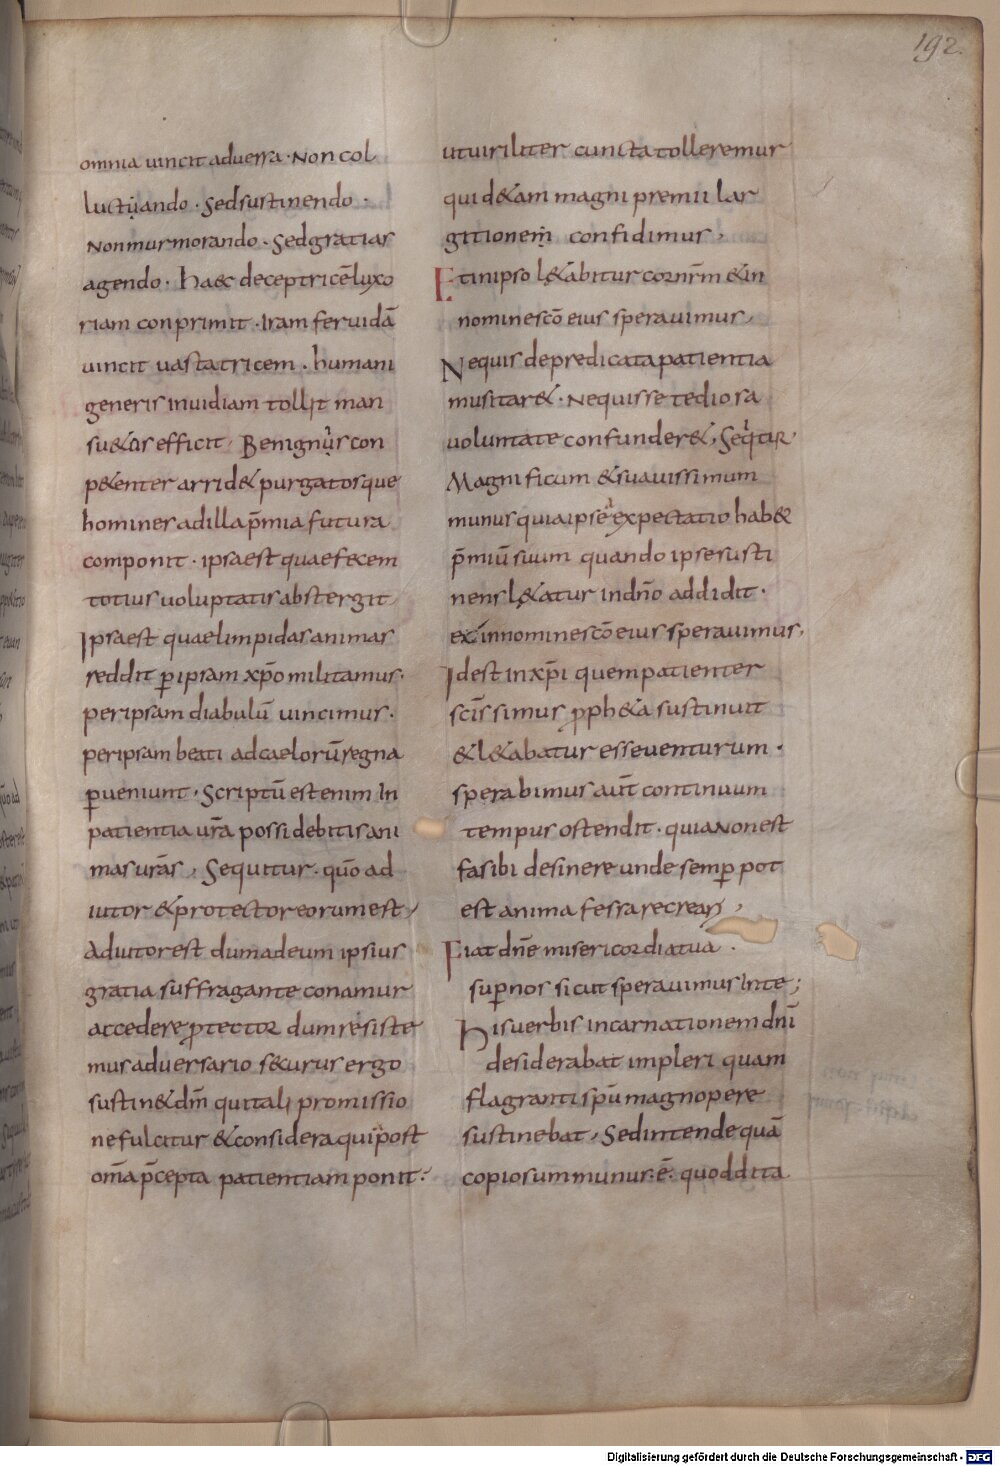 192.
omnia uincit aduersa · Non col
luctando · Sed sustinendo ·
Non murmorando · Sed gratias
agendo · haec deceptricē luxo
riam conprimit · Iram feruidā
uincit uastatricem · humani
generis inuidiam tollit man
su&os efficit · Benignus con
p&enter arrid& purgatosque
homines ad illa p̄mia futura
componit · ipsa est quae fecem
totius uoluptatis abstergit
Ipsa est quae limpidas animas
reddit ꝑ ipsam xp̄o militamus ·
per ipsam diabulū uincimus ·
per ipsam beati ad caelorū regna
ꝑueniunt · Scriptū est enim In
patientia ur̄a possidebitis ani
mas urās, Sequitur · quō ad
iutor & protector eorum est,
Adiutor est dum ad eum ipsius
gratia suffragante conamur
accedere ꝓtector dum resiste
mus aduersario s&curus ergo
sustin& dm̄ qui tali promissio
ne fulcitur & considera qui post
om̄a p̄cepta patientiam ponit ·
ut uiriliter cuncta tolleremur
qui d&am magni premii lar
gitionem confidimus,
Et in ipso l&abitur cor nr̄m & in
nomine scō eius sperauimus,
Nequis depredicata patientia
musitar& · Nequis se tediosa
uoluntate confunder&, Seqtur,
Magnificum & suauissimum
munus quia ipse expectatio hab&
p̄miū suum quando ipse susti
nens l&atur in dn̄o addidit ·
ex in nomine scō eius sperauimus,
Id est in xp̄i quem patienter
scīssimus ꝓph&a sustinuit
& l&abatur esse uenturum ·
sperabimus aut̄ continuum
tempus ostendit · quia non est
fas ibi desinere unde semꝑ pot
est anima fessa recreari,
Fiat dn̄e misericordia tua ·
suꝑ nos sicut sperauimus In te;
His uerbis incarnationem dnī
desiderabat impleri quam
flagranti spū magnopere
sustinebat, Sed intende quā
copiosum munus · ē · quod dita
Digitalisierung gefördert durch die Deutsche Forschungsgemeinschaft - DFG